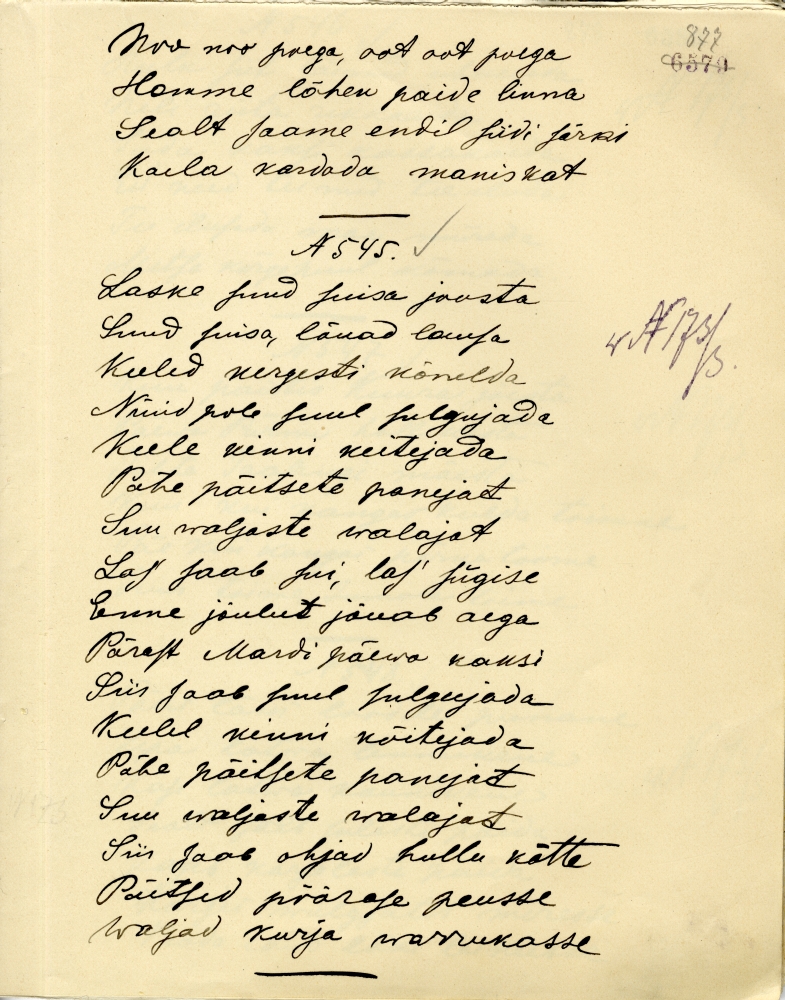 877
6579
Noo noo poega, oot oot poega
Homme lähen paide linna
Sealt saame endil siidi särki
Kaela kardada maniskat
N 545.
Laske suud suisa joosta
Suud suisa, lõuad lausa
Keeled kergesti kõnelda
w N 173/3.
Nüüd pole suul sulgujada
Keele kinni keitejada
Pähe päitsete panejat
Suu waljaste walajat
Las' saab sui, las' sügise
Enne jõulut jõuab aega
Pärast Mardi päewa kaksi
Siis saab suul sulgujada
Keelel kinni köitejada
Pähe päitsete panejat
Suu waljaste walajat
Siis saab ohjad hullu kätte
Päitsed pöörase peusse
Waljad kurja warrukasse